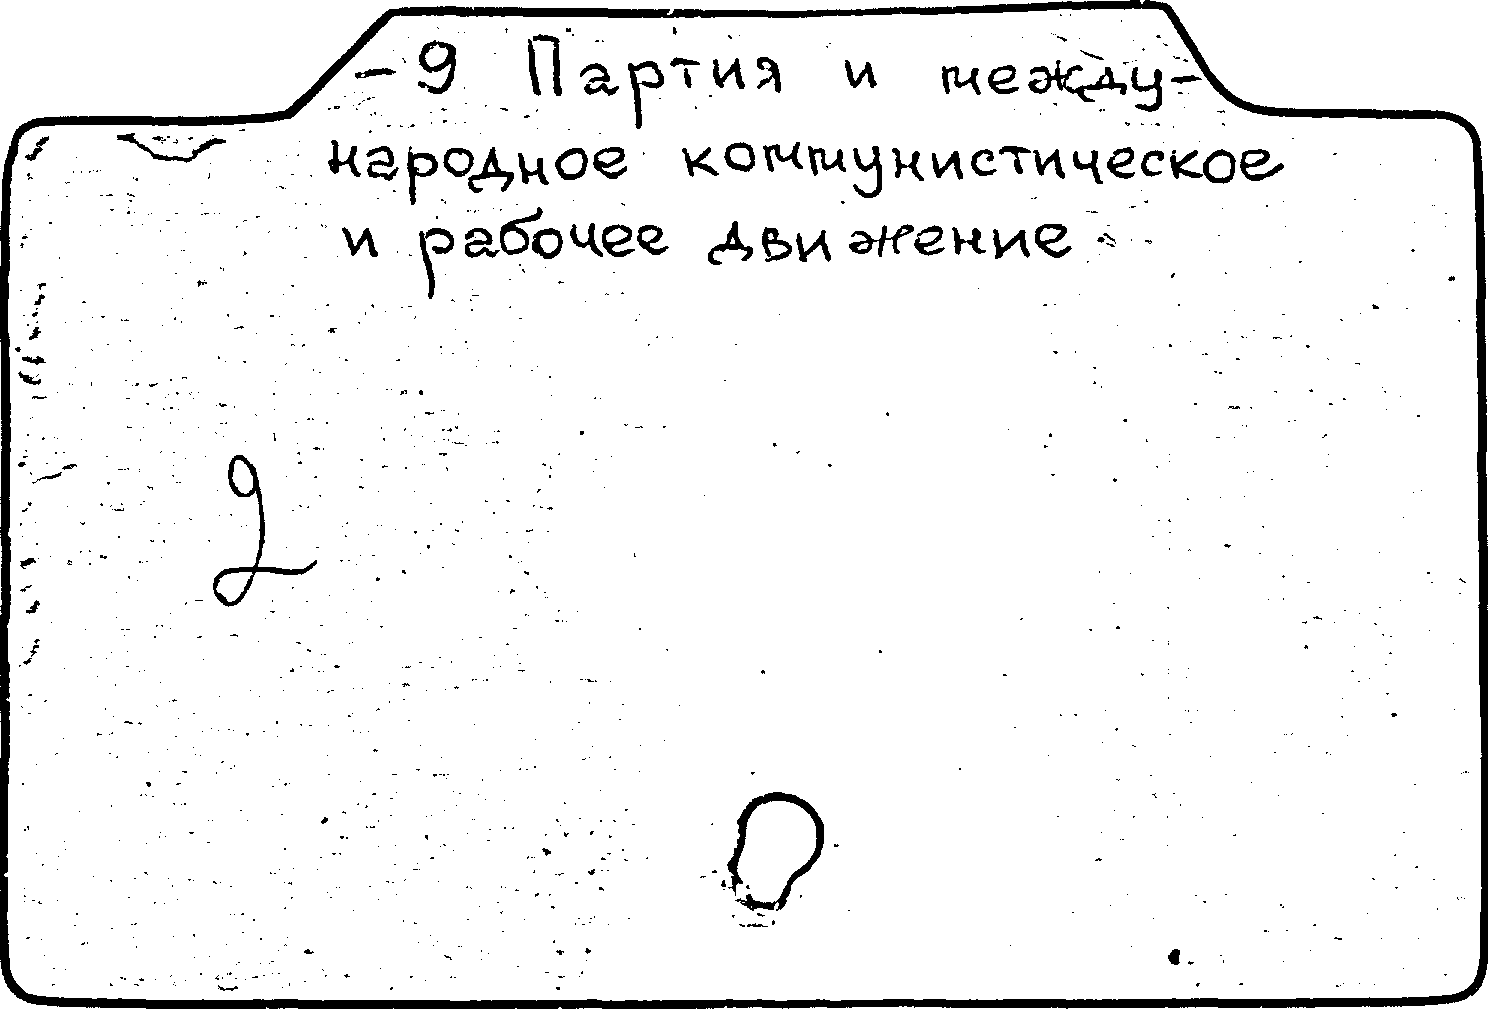 -9 Партия и между-
народное коммунистическое
и рабочее движение
2